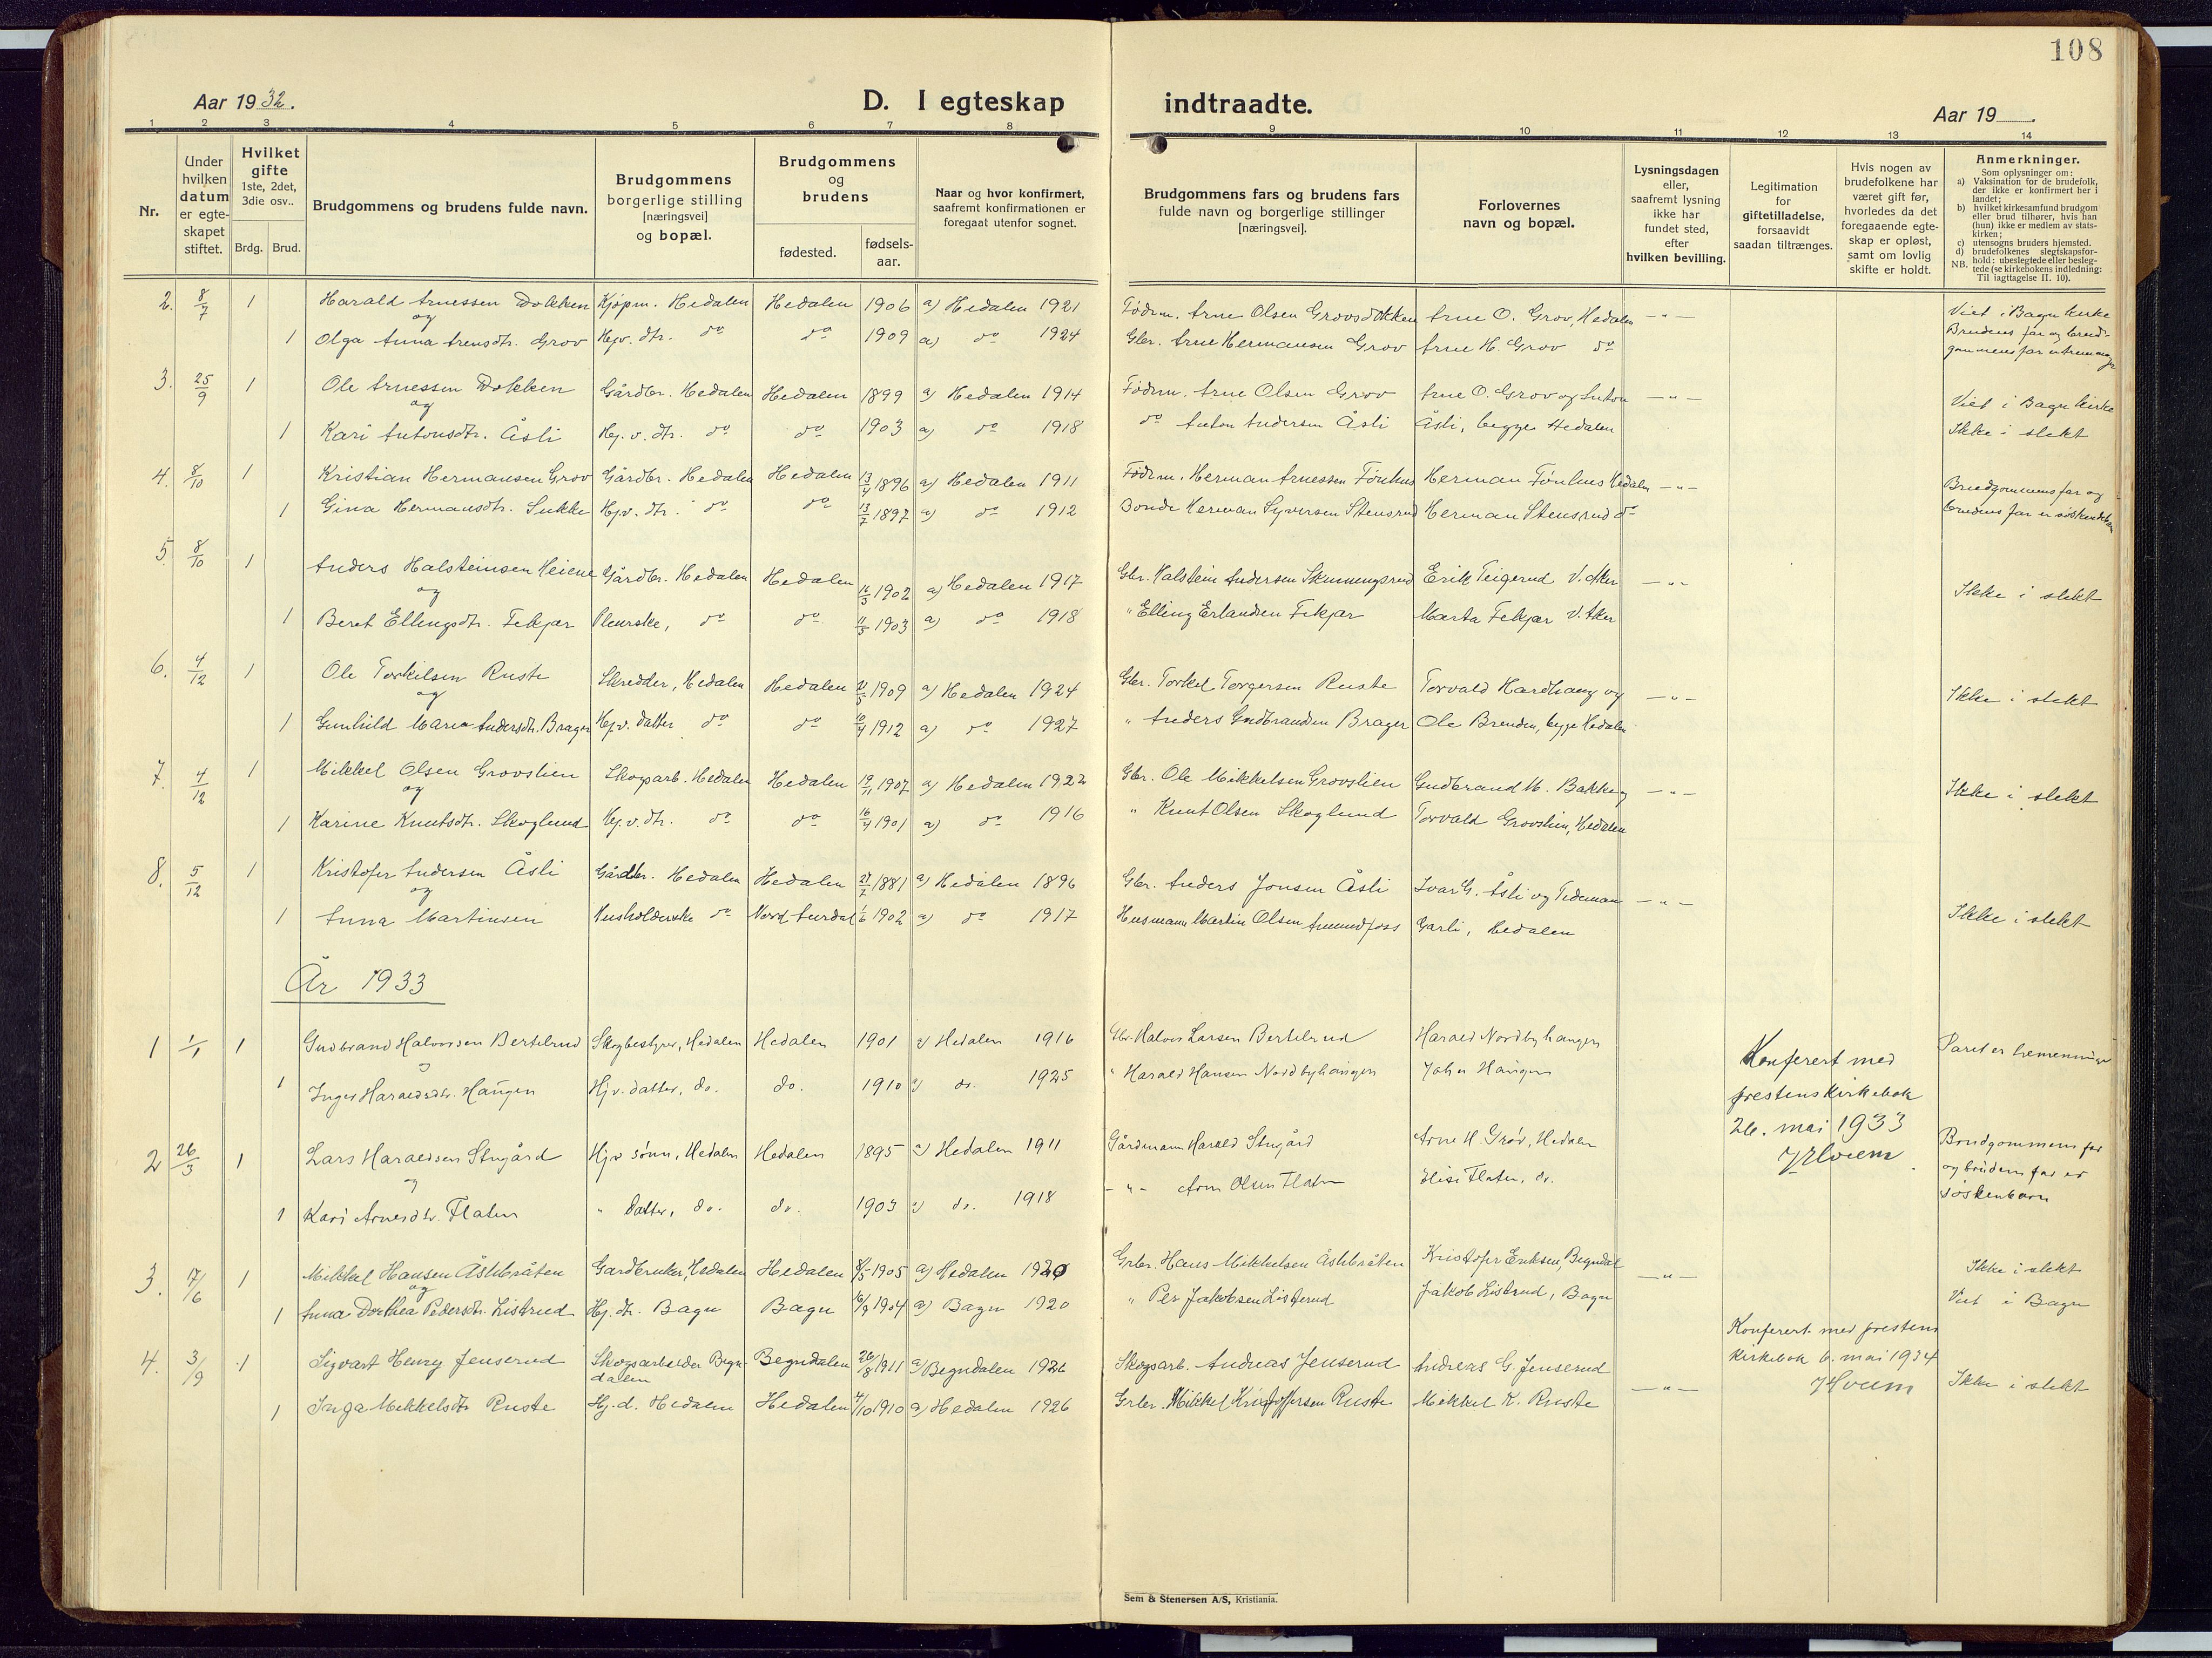 108
Aar 1932.
D. I egteskap indtraadte.
Aar 19
1 2 3 4 5 6 7 8 9 10 11 12 13 14
Nr.
Under hvilken datum er egteskapet stiftet.
Hvilket gifte 1ste, 2det, 3die osv..
Brdg. Brud.
Brudgommens og brudens fulde navn.
Brudgommens borgerlige stilling [næringsvei] og bopæl.
Brudgommens og brudens
fødested. fødsels-aar.
Naar og hvor konfirmert, saafremt konfirmationen er foregaat utenfor sognet.
Brudgommens fars og brudens fars fulde navn og borgerlige stillinger [næringsvei].
Forlovernes navn og bopæl.
Lysningsdagen eller, saafremt lysning ikke har fundet sted, efter hvilken bevilling.
Legitimation for giftetilladelse, forsaavidt saadan tiltrænges.
Hvis nogen av brudefolkene har været gift før, hvorledes da det foregaaende egteskap er opløst, samt om lovlig skifte er holdt.
Anmerkninger.
Som oplysninger om:
a) Vaksination for de brudefolk, der ikke er konfirmert her i landet;
b) hvilket kirkesamfund brudgom eller brud tilhører, hvis han (hun) ikke er medlem av statskirken;
c) utensogns bruders hjemsted.
d) brudefolkenes slegtskapsforhold: ubeslegtede eller beslegtede (se kirkebokens indledning: NB. Til iagttagelse II. 10).
2. 8/7 1 Harald Arnessen Dokken Kjøpm. Hedalen Hedalen 1906 a) Hedalen 1921 Födrm. Arne Olsen Grovsdokken Arne O. Grov, Hedalen -"- Viet i Bagn kirke
og
1 Olga Anna Arensdtr. Grov Hjv. dtr. do do 1909 a) do 1924 Gbr. Arne Hermansen Grov Arne H. Grov do Brudens far og brud-
gommens far
3. 25/9 1 Ole Arnessen Dokken Gårdbr. Hedalen Hedalen 1899 a) Hedalen 1914 Födrm. Arne Olsen Grov Arne O. Grov og Anton -"- Viet i Bagn kirke
og
1 Kari Antonsdtr. Åsli Hj. v. dtr. do do 1903 a) do 1918 do Anton Andersen Åsli Åsli, begge Hedalen Ikke i slekt
4. 8/10 1 Kristian Hermansen Grov Gårdbr. Hedalen Hedalen 13/4 1896 a) Hedalen 1911 Födrm. Herman Arnessen Fönhus Herman Fönhus Hedalen -"- Brudgommens far og
1 Gina Hermansdtr. Sukke Hjv. dtr. do do 13/7 1897 a) do 1912 Bonde Herman Syversen Stensrud Herman Stensrud do brudens far er söskendebarn
5. 8/10 1 Anders Halsteinsen Heiene Gårdbr. Hedalen Hedalen 1902 a) Hedalen 1917 Gbr. Halstein Andersen Skinningsrud Erik Teigerud V. Aker -"- Ikke i slekt
og
1 Beret Ellingsdtr. Fekjær Pleierske, do do 11/5 1903 a) do 1918 " Elling Erlandsen Fekjær Marta Fekjær V. Aker
6. 4/12 1 Ole Torkilsen Ruste Skredder, Hedalen Hedalen 1909 a) Hedalen 1924 Gbr. Torkel Torgersen Ruste Torvald Hardhaug og -"- Ikke i slekt
og
1 Gunhild Marie Andersdtr. Brager Hjv. datter do do 1912 a) do 1927 " Anders Gudbrandsen Brager Ole Brenden, begge Hedalen
7. 4/12 1 Mikkel Olsen Grovslien Skogsarb. Hedalen Hedalen 19/11 1907 a) Hedalen 1922 Gbr. Ole Mikkelsen Grovslien Gudbrand M. Bakke og -"- Ikke i slekt
og
1 Karine Knutsdtr. Skoglund Hj. v. dtr. do do 16/4 1901 a) do 1916 " Knut Olsen Skoglund Torvald Grovslien, Hedalen
8. 5/12 1 Kristofer Andersen Åsli Gårdbr. Hedalen Hedalen 27/7 1881 a) Hedalen 1896 Gbr. Anders Jonsen Åsli Ivar G. Åsli og Tideman -"-
og
1 Anna Martinsen Husholderske do Nord Aurdal 1/6 1902 a) do 1917 Husmann Martin Olsen Amundfoss Garli, Hedalen Ikke i slekt
År 1933
1 1/1 1 Gudbrand Halvorsen Bertilrud Skogbestyrer, Hedalen Hedalen 1901 a) Hedalen 1916 Gbr. Halvor Larsen Bertilrud Harald Nordbyhaugen Paret er tremenninger
og
1 Inger Haraldsdtr. Haugen Hjv. datter, do. do. 1910 a) do. 1925 " Harald Hansen Nordbyhaugen Johan Haugen
Konferert med
prestens kirkebok
26. mai 1933
J Hoem
2 26/3 1 Lars Haraldsen Stugård Hjv sønn, Hedalen Hedalen 1895 a) Hedalen 1911 Gårdmann Harald Stugård Arne H. Grøv, Hedalen Brudgommens far
og
og brudens far er
1 Kari Arnesdtr. Flaten " datter, do. do. 1903 a) do. 1918 -"- Arne Olsen Flaten Elise Flaten, do. søskenbarn
3. 17/6 1 Mikkel Hansen Åslibråten Gardbruker, Hedalen Hedalen 1905 a) Hedalen 1920 Grbr. Hans Mikkelsen Åslibråten Kristofer Eriksen, Begndal -"- Ikke i slekt
og
1 Anna Dorthea Pedersdtr. Listrud Hj. dtr. Bagn Bagn 16/9 1904 a) Bagn 1920 " Per Jakobsen Listerud Jakob Listrud, Bagn Viet i Bagn
Konferert med prestens
kirkebok 6. mai 1934
J Hoem
4. 3/9 1 Sigvart Henry Jenserud Skogsarbeider Begn-
dalen Begndalen 26/8 1911 a) Begndalen 1926 Skogsarb. Andreas Jenserud Andreas G. Jenserud -"- Ikke i slekt
1 Inga Mikkelsdtr Ruste Hj. d. Hedalen Hedalen 1910 a) Hedalen 1926 Grbr. Mikkel Kristoffersen Ruste Mikkel K. Ruste
Sem & Stenersen A/S, Kristiania.